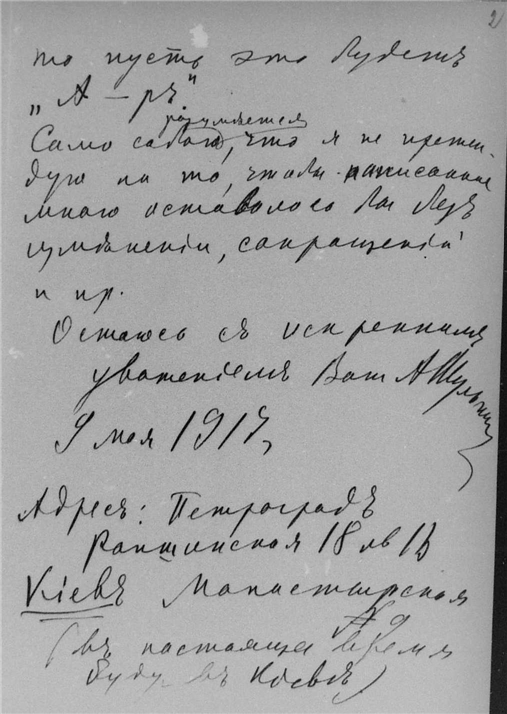 2
то пусть это будетъ
„А — ръ"
разумѣется
Само собою, что я не претен-
дую на то, чтобы написанное
мною оставалось бы безъ
измѣненій, сокращеній
и пр.
Остаюсь съ искреннимъ
уваженіемъ Ваш АШульгин
9 мая 1917
Адресъ: Петроградъ
18 кв 13
Кіевъ Монастырская
№ 9
(въ настоящее время
буду въ Кіевѣ)